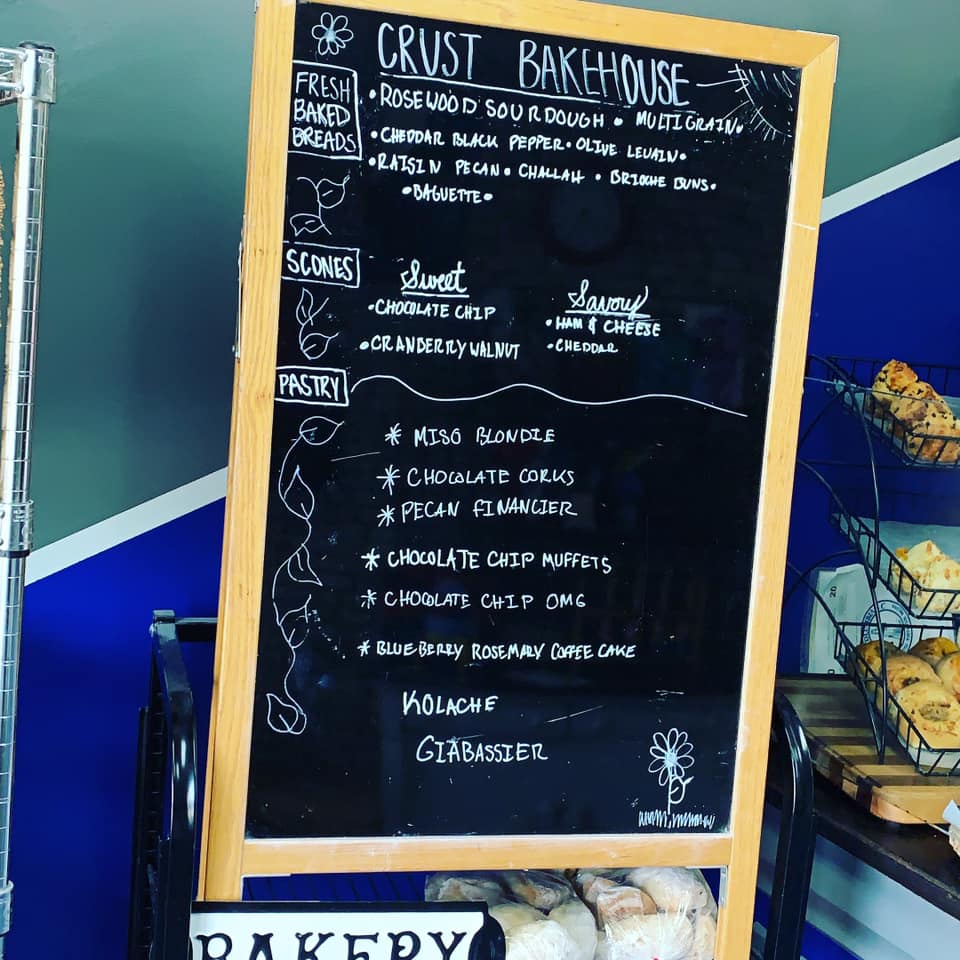 CRUST BAKEHOUSE
FRESH
BAKED
BREADS
•ROSEWOOD SOURDOUGH • MULTIGRAIN•
•CHEDDAR BLACK PEPPER•OLIVE LEVAIN•
•RAISIN PECAN• CHALLAH • BRIOCHE BUNS•
•BAGUETTE•
SCONES
Sweet
•CHOCOLATE CHIP
•CRANBERRY WALNUT
Savoury
•HAM & CHEESE
•CHEDDAR
PASTRY
* MISO BLONDIE
* CHOCOLATE CORKS
* PECAN FINANCIER
* CHOCOLATE CHIP MUFFETS
* CHOCOLATE CHIP OMG
* BLUEBERRY ROSEMARY COFFEE CAKE
KOLACHE
GIABASSIER
BAKERY
20